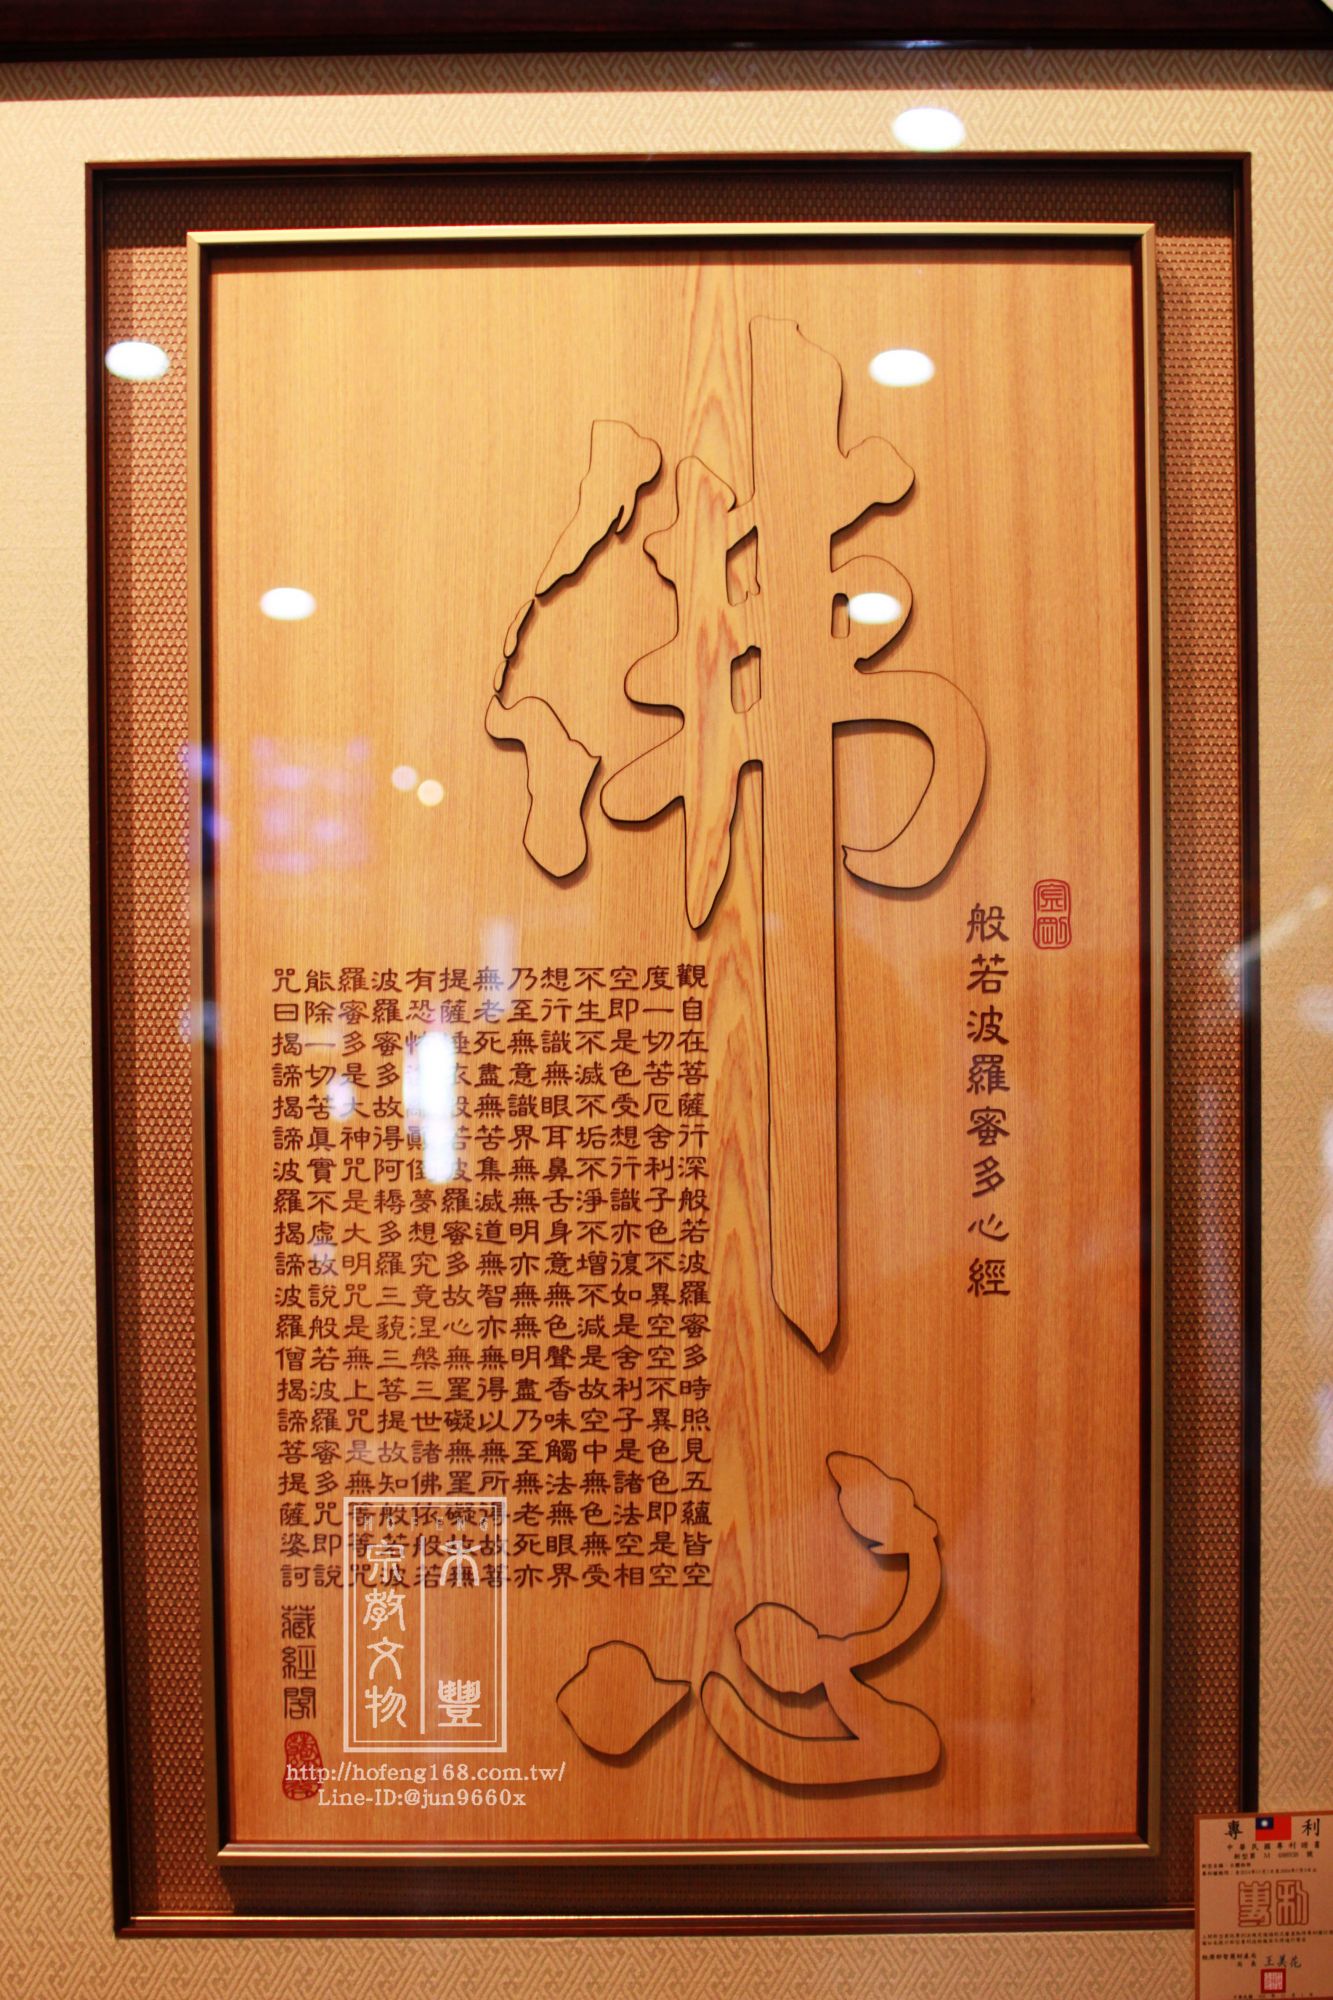 佛
心
般若波羅蜜多心經
觀自在菩薩行深般若波羅蜜多時照見五蘊皆空
度一切苦厄舍利子色不異空空不異色色即是空
空即是色受想行識亦復如是舍利子是諸法空相
不生不滅不垢不淨不增不減是故空中無色無受
想行識無眼耳鼻舌身意無色聲香味觸法無眼界
乃至無意識界無無明亦無無明盡乃至無老死亦
無老死盡無苦集滅道無智亦無得以無所得故菩
提薩埵依般若波羅蜜多故心無罣礙無罣礙故無
有恐怖遠離顛倒夢想究竟涅槃三世諸佛依般若
波羅蜜多故得阿耨多羅三藐三菩提故知般若波
羅蜜多是大神咒是大明咒是無上咒是無等等咒
能除一切苦真實不虛故說般若波羅蜜多咒即說
咒曰揭諦揭諦波羅揭諦波羅僧揭諦菩提薩婆訶
藏經閣
HOFENG
禾豐
宗教文物
http://hofeng168.com.tw/
Line-ID:@jun9660x
專利
中華民國專利證書
新型第 M 號
專利
經濟部智慧財產局
局長 王美花